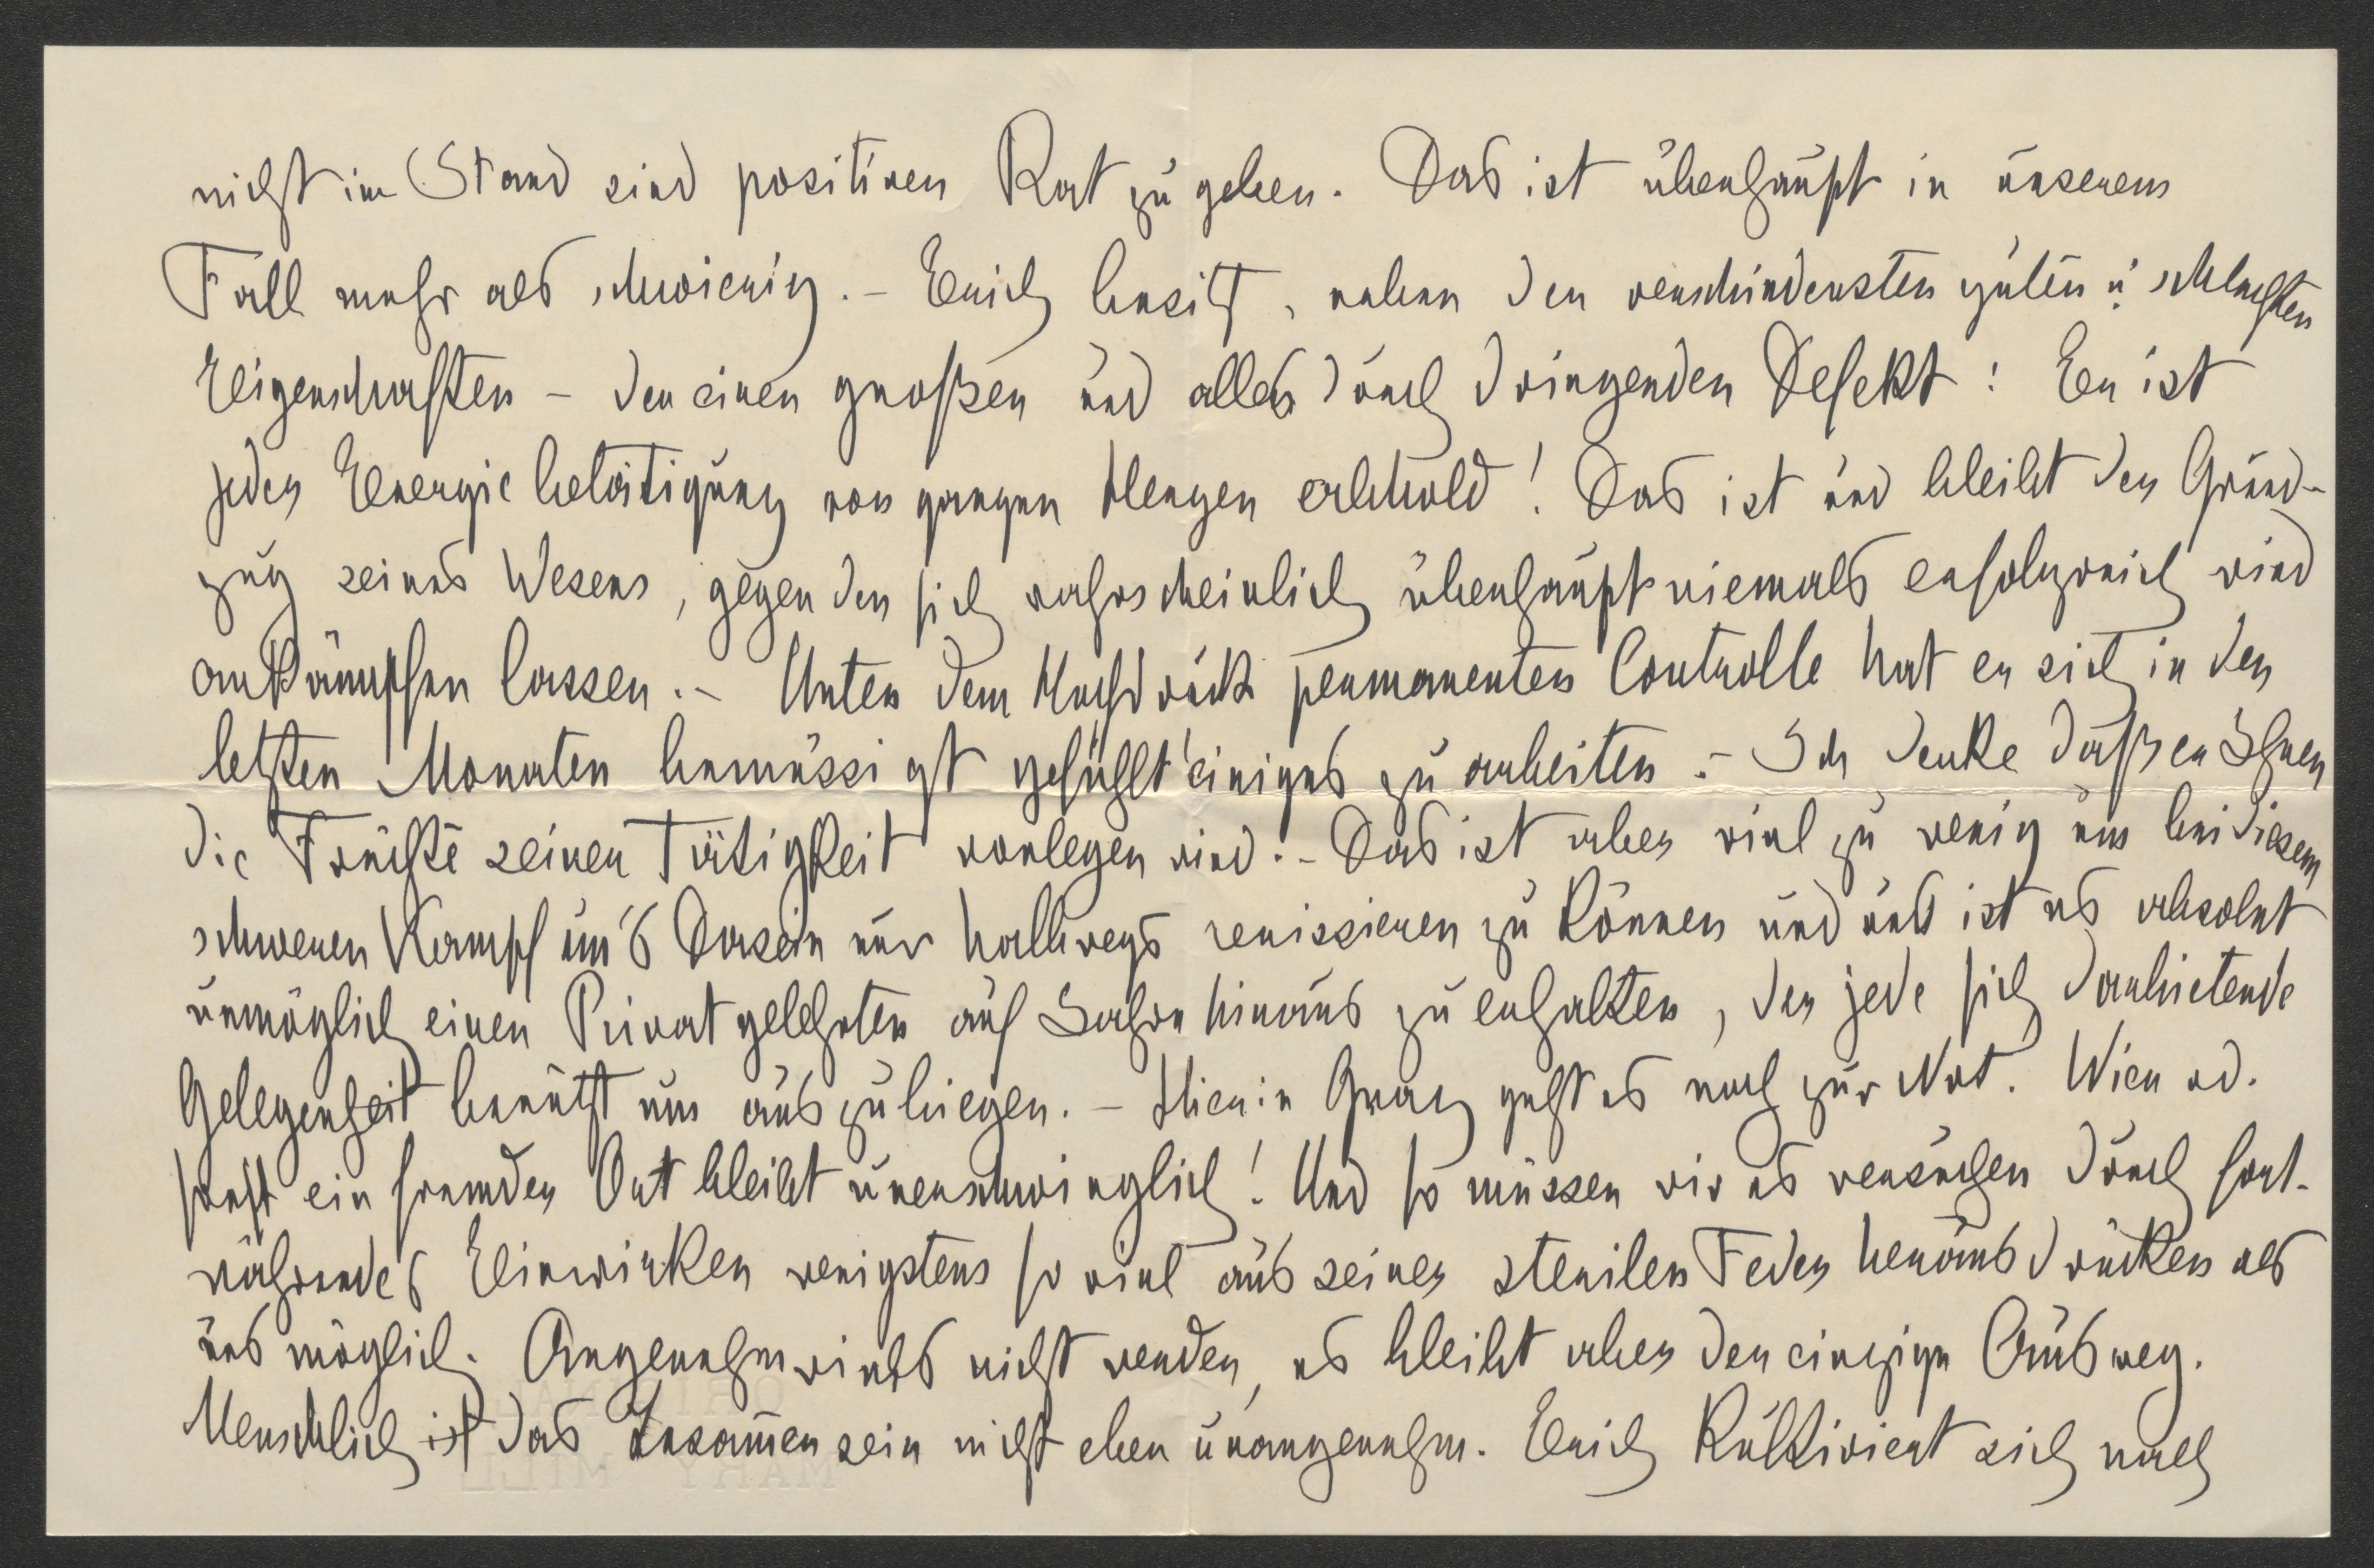 nicht im Stand sind positiven Rat zu geben. Das ist überhaupt in unserem
Fall mehr als schwierig. – Erich besitzt, neben den verschiedensten guten u. schlechten
Eigenschaften – den einen großen und alles durchdringenden Defekt: Er ist
jeder Energiebetätigung von ganzem Herzen abhold! Das ist und bleibt der Grund-
zug seines Wesens, gegen den sich wahrscheinlich überhaupt niemals erfolgreich wird
ankämpfen lassen. – Unter dem Hochdruck permanenter Controlle hat er sich in den
letzten Monaten bemüssigt gefühlt einiges zu arbeiten. – Ich denke daß er Ihnen
die Früchte seiner Tätigkeit vorlegen wird. – Das ist aber viel zu wenig um bei diesem
schweren Kampf um's Dasein nur halbwegs reüssieren zu können und uns ist es absolut
unmöglich einen Privatgelehrten auf Jahre hinaus zu erhalten, der jede sich darbietende
Gelegenheit benützt um auszubiegen. – Hier in Graz geht es noch zur Not. Wien od.
sonst ein fremder Ort bleibt unerschwinglich! Und so müssen wir es versuchen durch fort-
währendes Einwirken wenigstens so viel aus seiner sterilen Feder herauszudrücken als
uns möglich. Angenehm wirds nicht werden, es bleibt aber der einzige Ausweg.
Menschlich ist das Zusammensein nicht eben unangenehm. Erich kultiviert sich nach